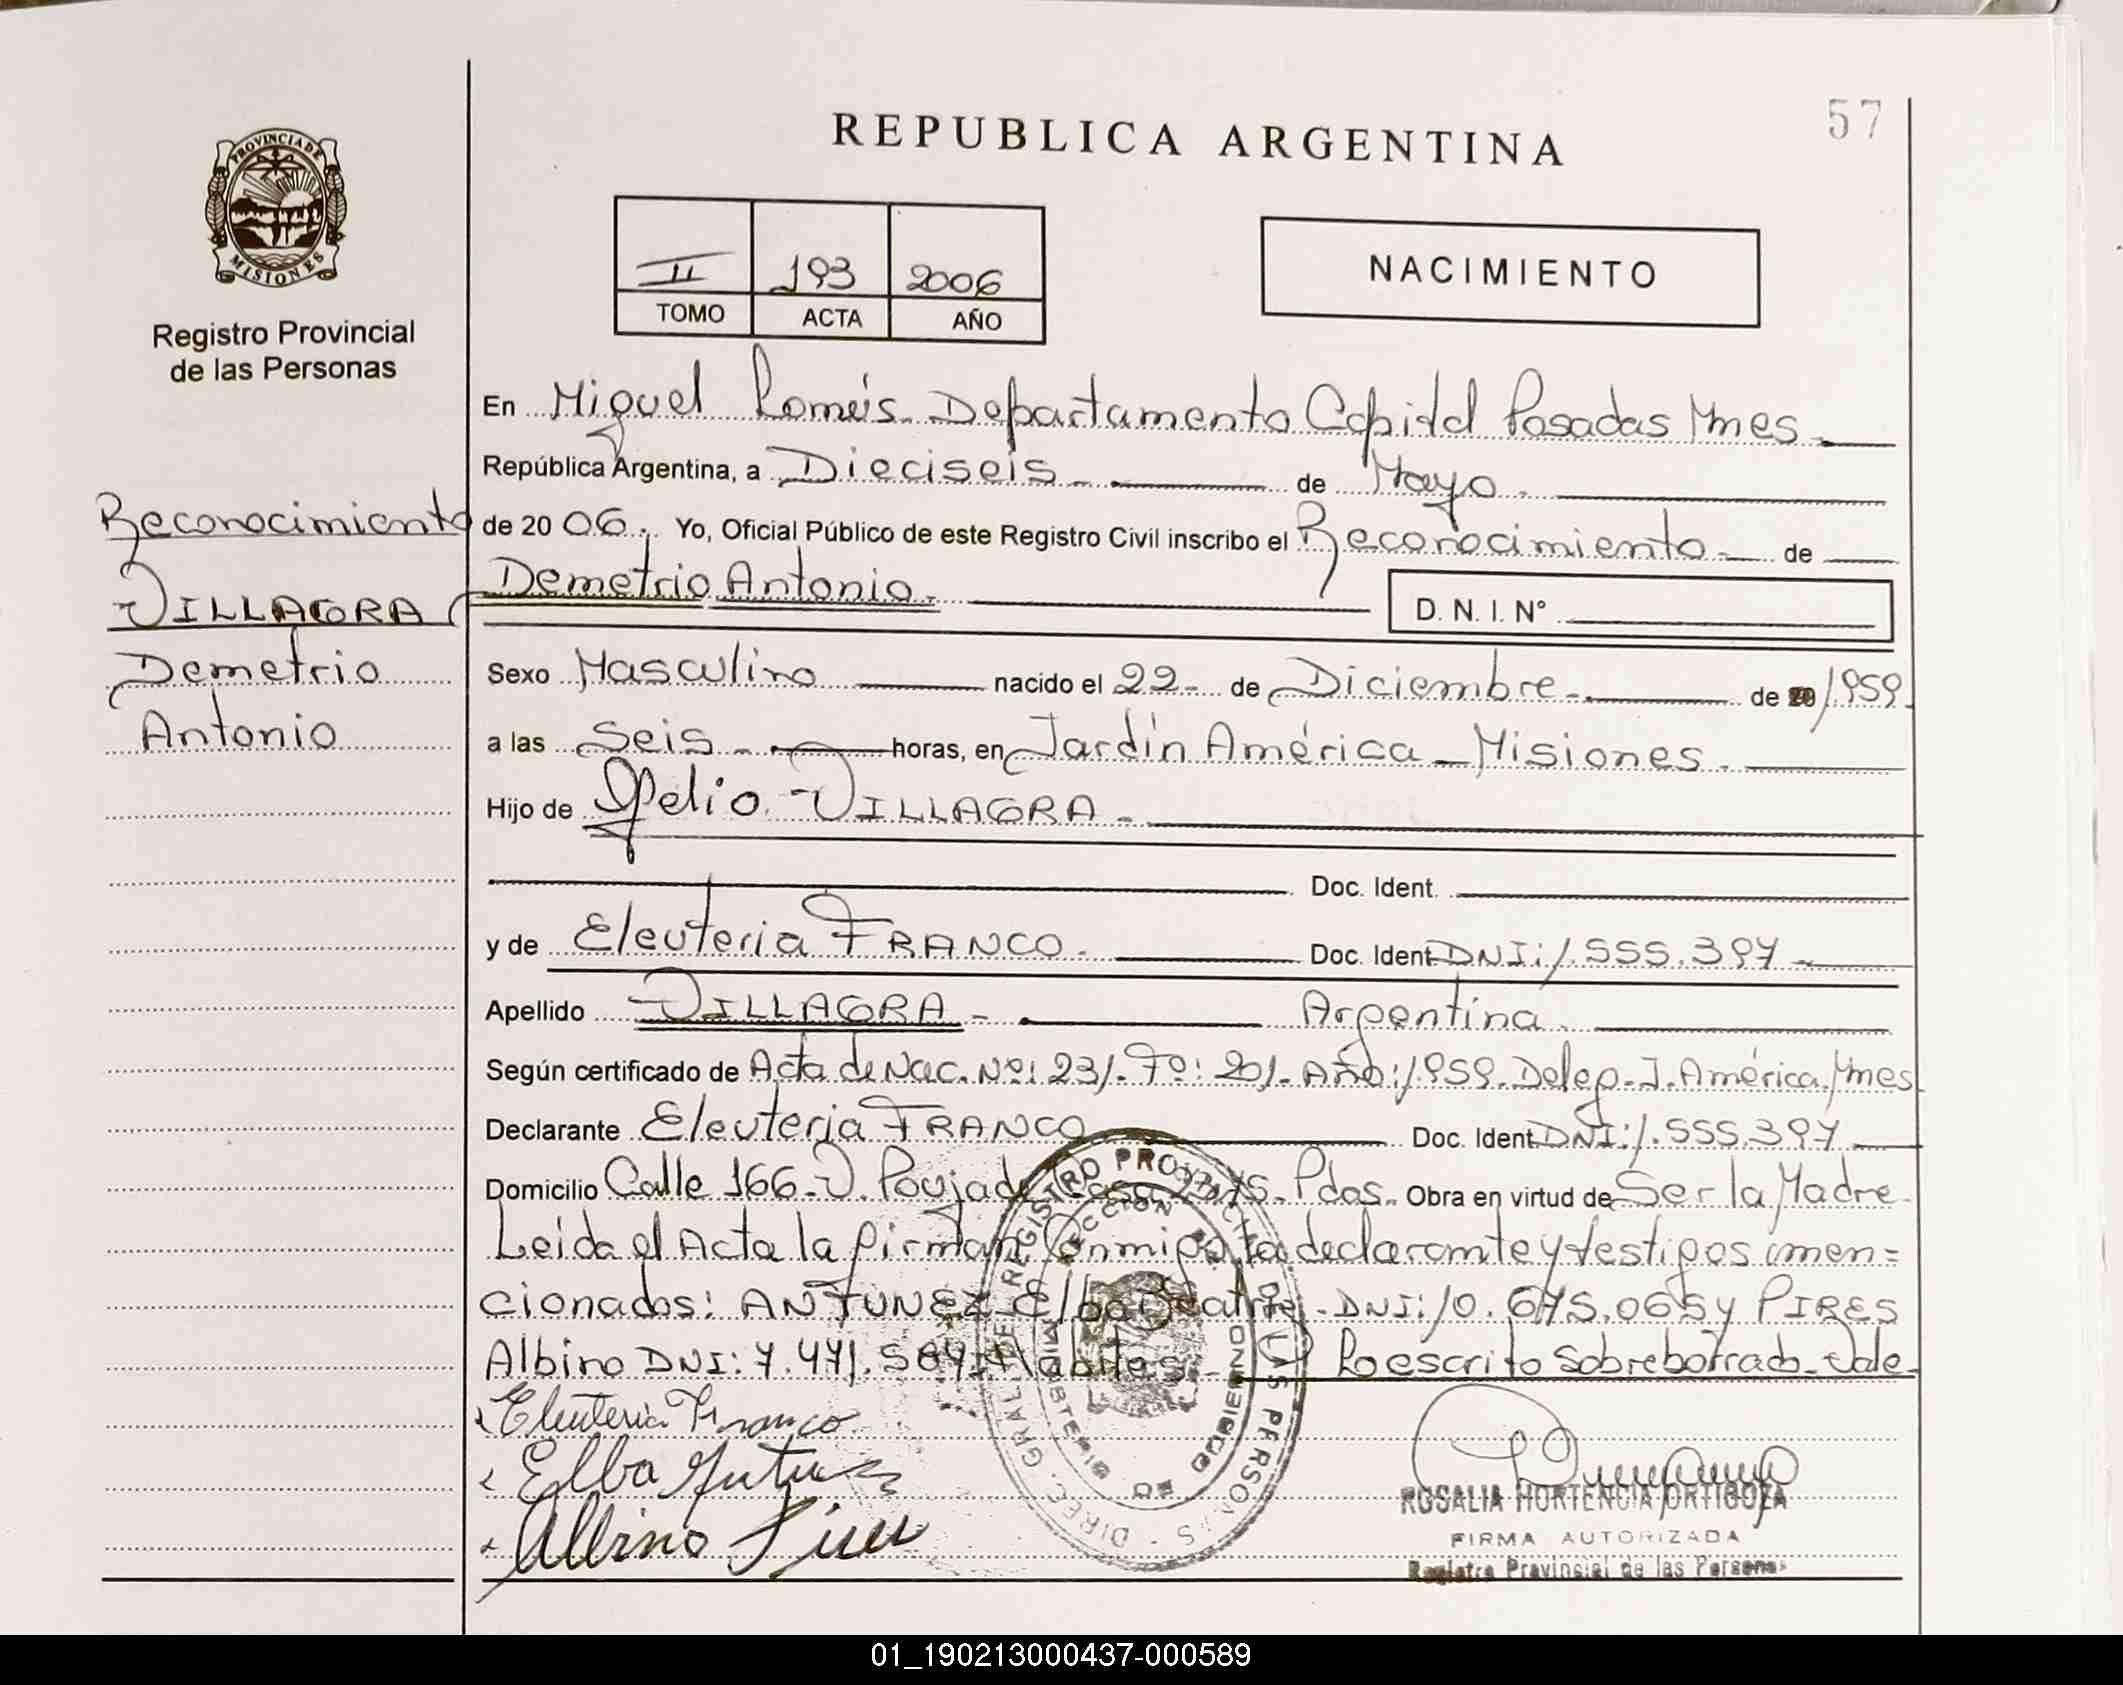 57
REPUBLICA ARGENTINA
PROVINCIA DE
MISIONES
Registro Provincial
de las Personas
II 193 2006
TOMO ACTA AÑO
NACIMIENTO
En Miguel Lanús. Departamento Capital Posadas Mnes.
República Argentina, a Dieciseis. de Mayo.
de 20 06. Yo, Oficial Público de este Registro Civil inscribo el Reconocimiento. de
Demetrio Antonio.
D. N. I. N°
Reconocimiento
VILLAGRA
Demetrio
Antonio
Sexo Masculino nacido el 22. de Diciembre. de 20 1959.
a las Seis. horas, en Jardín América - Misiones.
Hijo de Delio VILLAGRA.
Doc. Ident.
y de Eleuteria FRANCO. Doc. Ident. DNI: 1.555.397
Apellido VILLAGRA. Argentina.
Según certificado de Acta de Nac. Nº: 231. Tº: 201. Año: 1959. Deleg. J. América. Mnes
Declarante Eleuteria FRANCO Doc. Ident. DNI: 1.555.397
Domicilio Calle 166. Pdas. Obra en virtud de Ser la Madre.
Leida el Acta la firman Conmigo la declarante y testigos men=
cionados: ANTUNEZ Elba Beatriz. DNI: 10.675.065 y PIRES
Albino DNI: 7.471. Habiles. Lo escrito sobreborrado. Vale.
Eleuteria Franco
Elba Antunez
Albino Pires
DIREC. GRAL. DE REGISTRO PROVINCIAL DE LAS PERSONAS
MINISTERIO DE GOBIERNO
ROSALIA HORTENCIA ORTIGOZA
FIRMA AUTORIZADA
Registro Provincial de las Personas
01_190213000437-000589